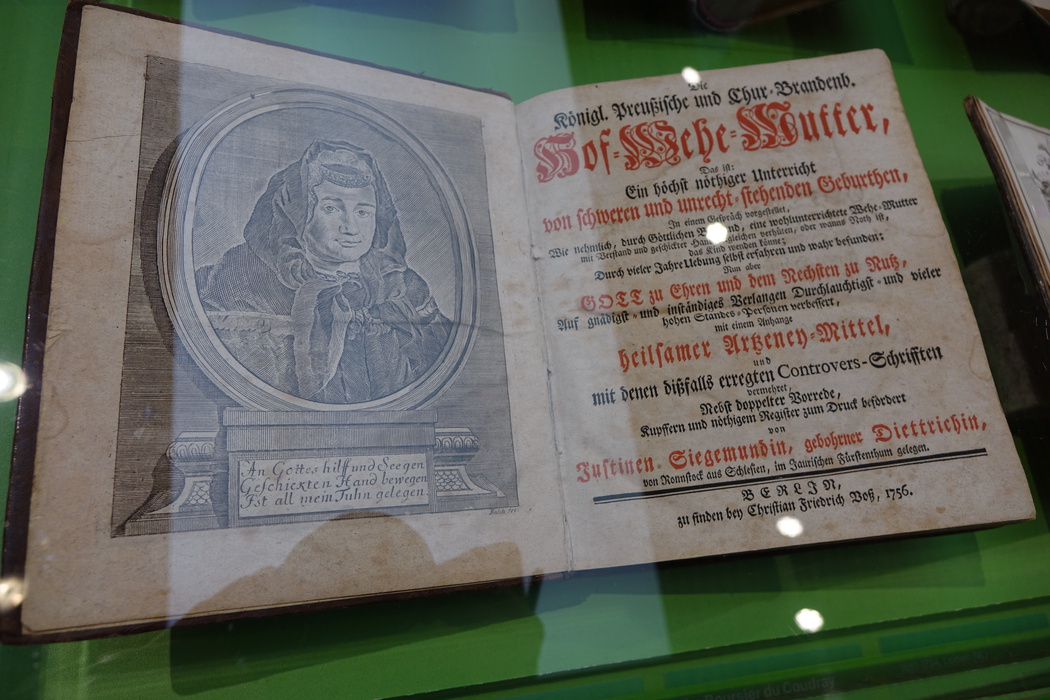 An Gottes hilff und Seegen
Geschickten Hand bewegen
Ist all mein Tuhn gelegen
Die
Königl. Preußische und Chur-Brandenb.
Hof-Wehe-Mutter,
Das ist:
Ein höchst nöthiger Unterricht
von schweren und unrecht-stehenden Geburthen,
In einem Gespräch vorgestellet,
Wie nehmlich, durch Göttlichen eine wohlunterrichtete Wehe-Mutter
mit Verstand und geschickter verhüten, oder wanns Noth ist,
das Kind wenden könne;
Durch vieler Jahre Uebung selbst erfahren und wahr befunden:
Nun aber
GOTT zu Ehren und dem Nechsten zu Nutz,
Auf gnädigst- und inständiges Verlangen Durchlauchtigst- und vieler
hohen Standes-Personen verbessert,
mit einem Anhange
heilsamer Artzeney-Mittel,
und
mit denen dißfalls erregten Controvers-Schrifften
vermehret,
Nebst doppelter Vorrede,
Kupffern und nöthigem Register zum Druck befördert
von
Justinen Siegemundin, gebohrner Diettrichin,
von Ronnstock aus Schlesien, im Jaurischen Fürstenthum gelegen.
BERLIN,
zu finden bey Christian Friedrich Voß, 1756.
Boursier du Coudray